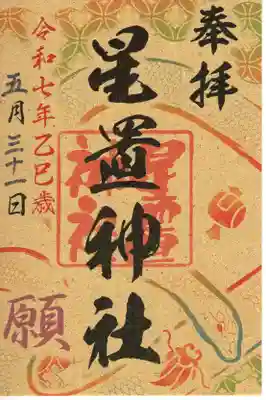 奉拝
星置神社
令和七年乙巳歳
五月三十一日
願